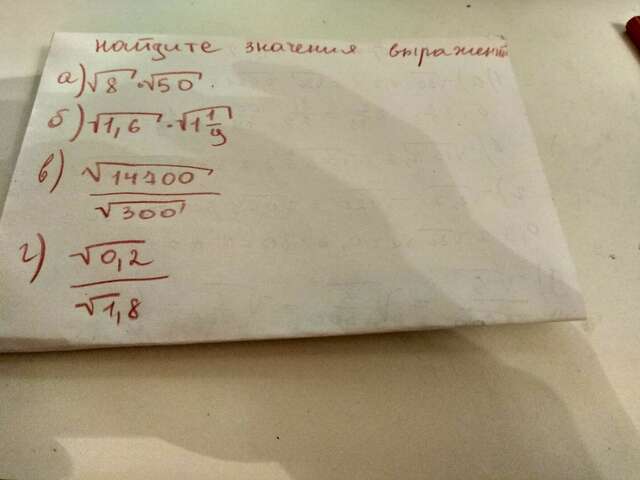 найдите значения выражени
а) √8 · √50.
б) √1,6 · √1 1/9
в) √14700 / √300
г) √0,2 / √1,8